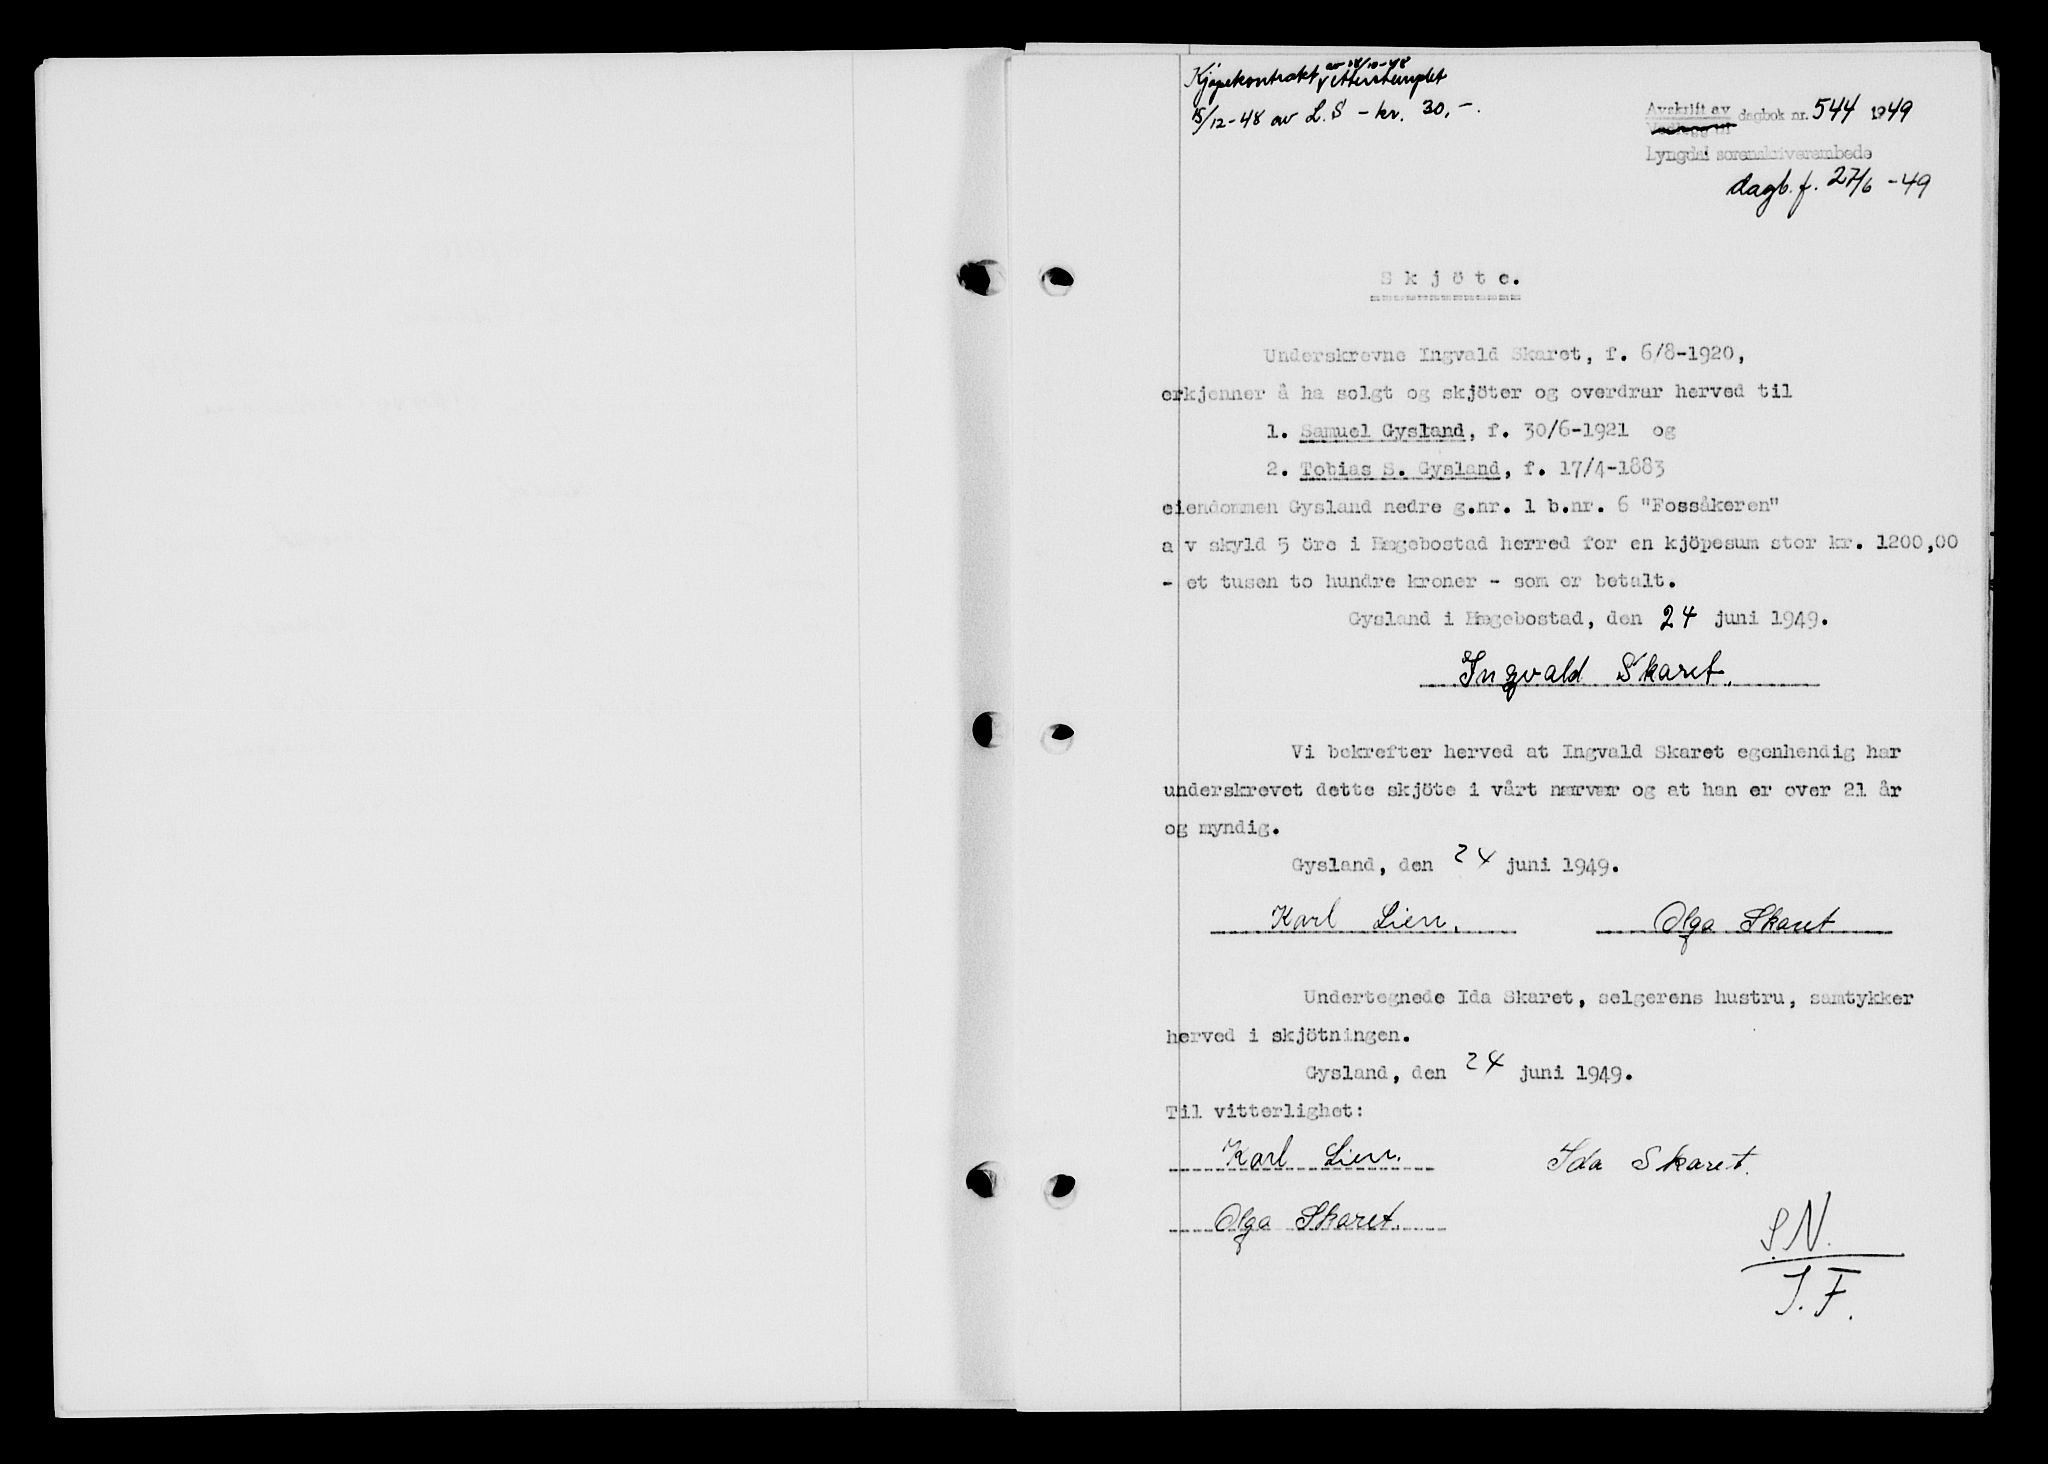 Kjøpekontrakt av 18/10-48 etterstemplet
15/12-48 av L.S - kr. 30,-.
Avskrift av
Vedlegg til
dagbok nr. 544 1949
Lyngdal sorenskriverembede
dagb. f. 27/6 -49
S k j ö t e.
Underskrevne Ingvald Skaret, f. 6/8-1920,
erkjenner å ha solgt og skjöter og overdrar herved til
1. Samuel Gysland, f. 30/6-1921 og
2. Tobias S. Gysland, f. 17/4-1883
eiendommen Gysland nedre g.nr. 1 b.nr. 6 "Fossåkeren"
a v skyld 5 öre i Hægebostad herred for en kjöpesum stor kr. 1200,00
- et tusen to hundre kroner - som er betalt.
Gysland i Hægebostad, den 24 juni 1949.
Ingvald Skaret.
Vi bekrefter herved at Ingvald Skaret egenhendig har
underskrevet dette skjöte i vårt nærvær og at han er over 21 år
og myndig.
Gysland, den 24 juni 1949.
Karl Lien. Olga Skaret
Undertegnede Ida Skaret, selgerens hustru, samtykker
herved i skjötningen.
Gysland, den 24 juni 1949.
Til vitterlighet:
Karl Lien. Ida Skaret.
Olga Skaret.
S.N.
J.F.